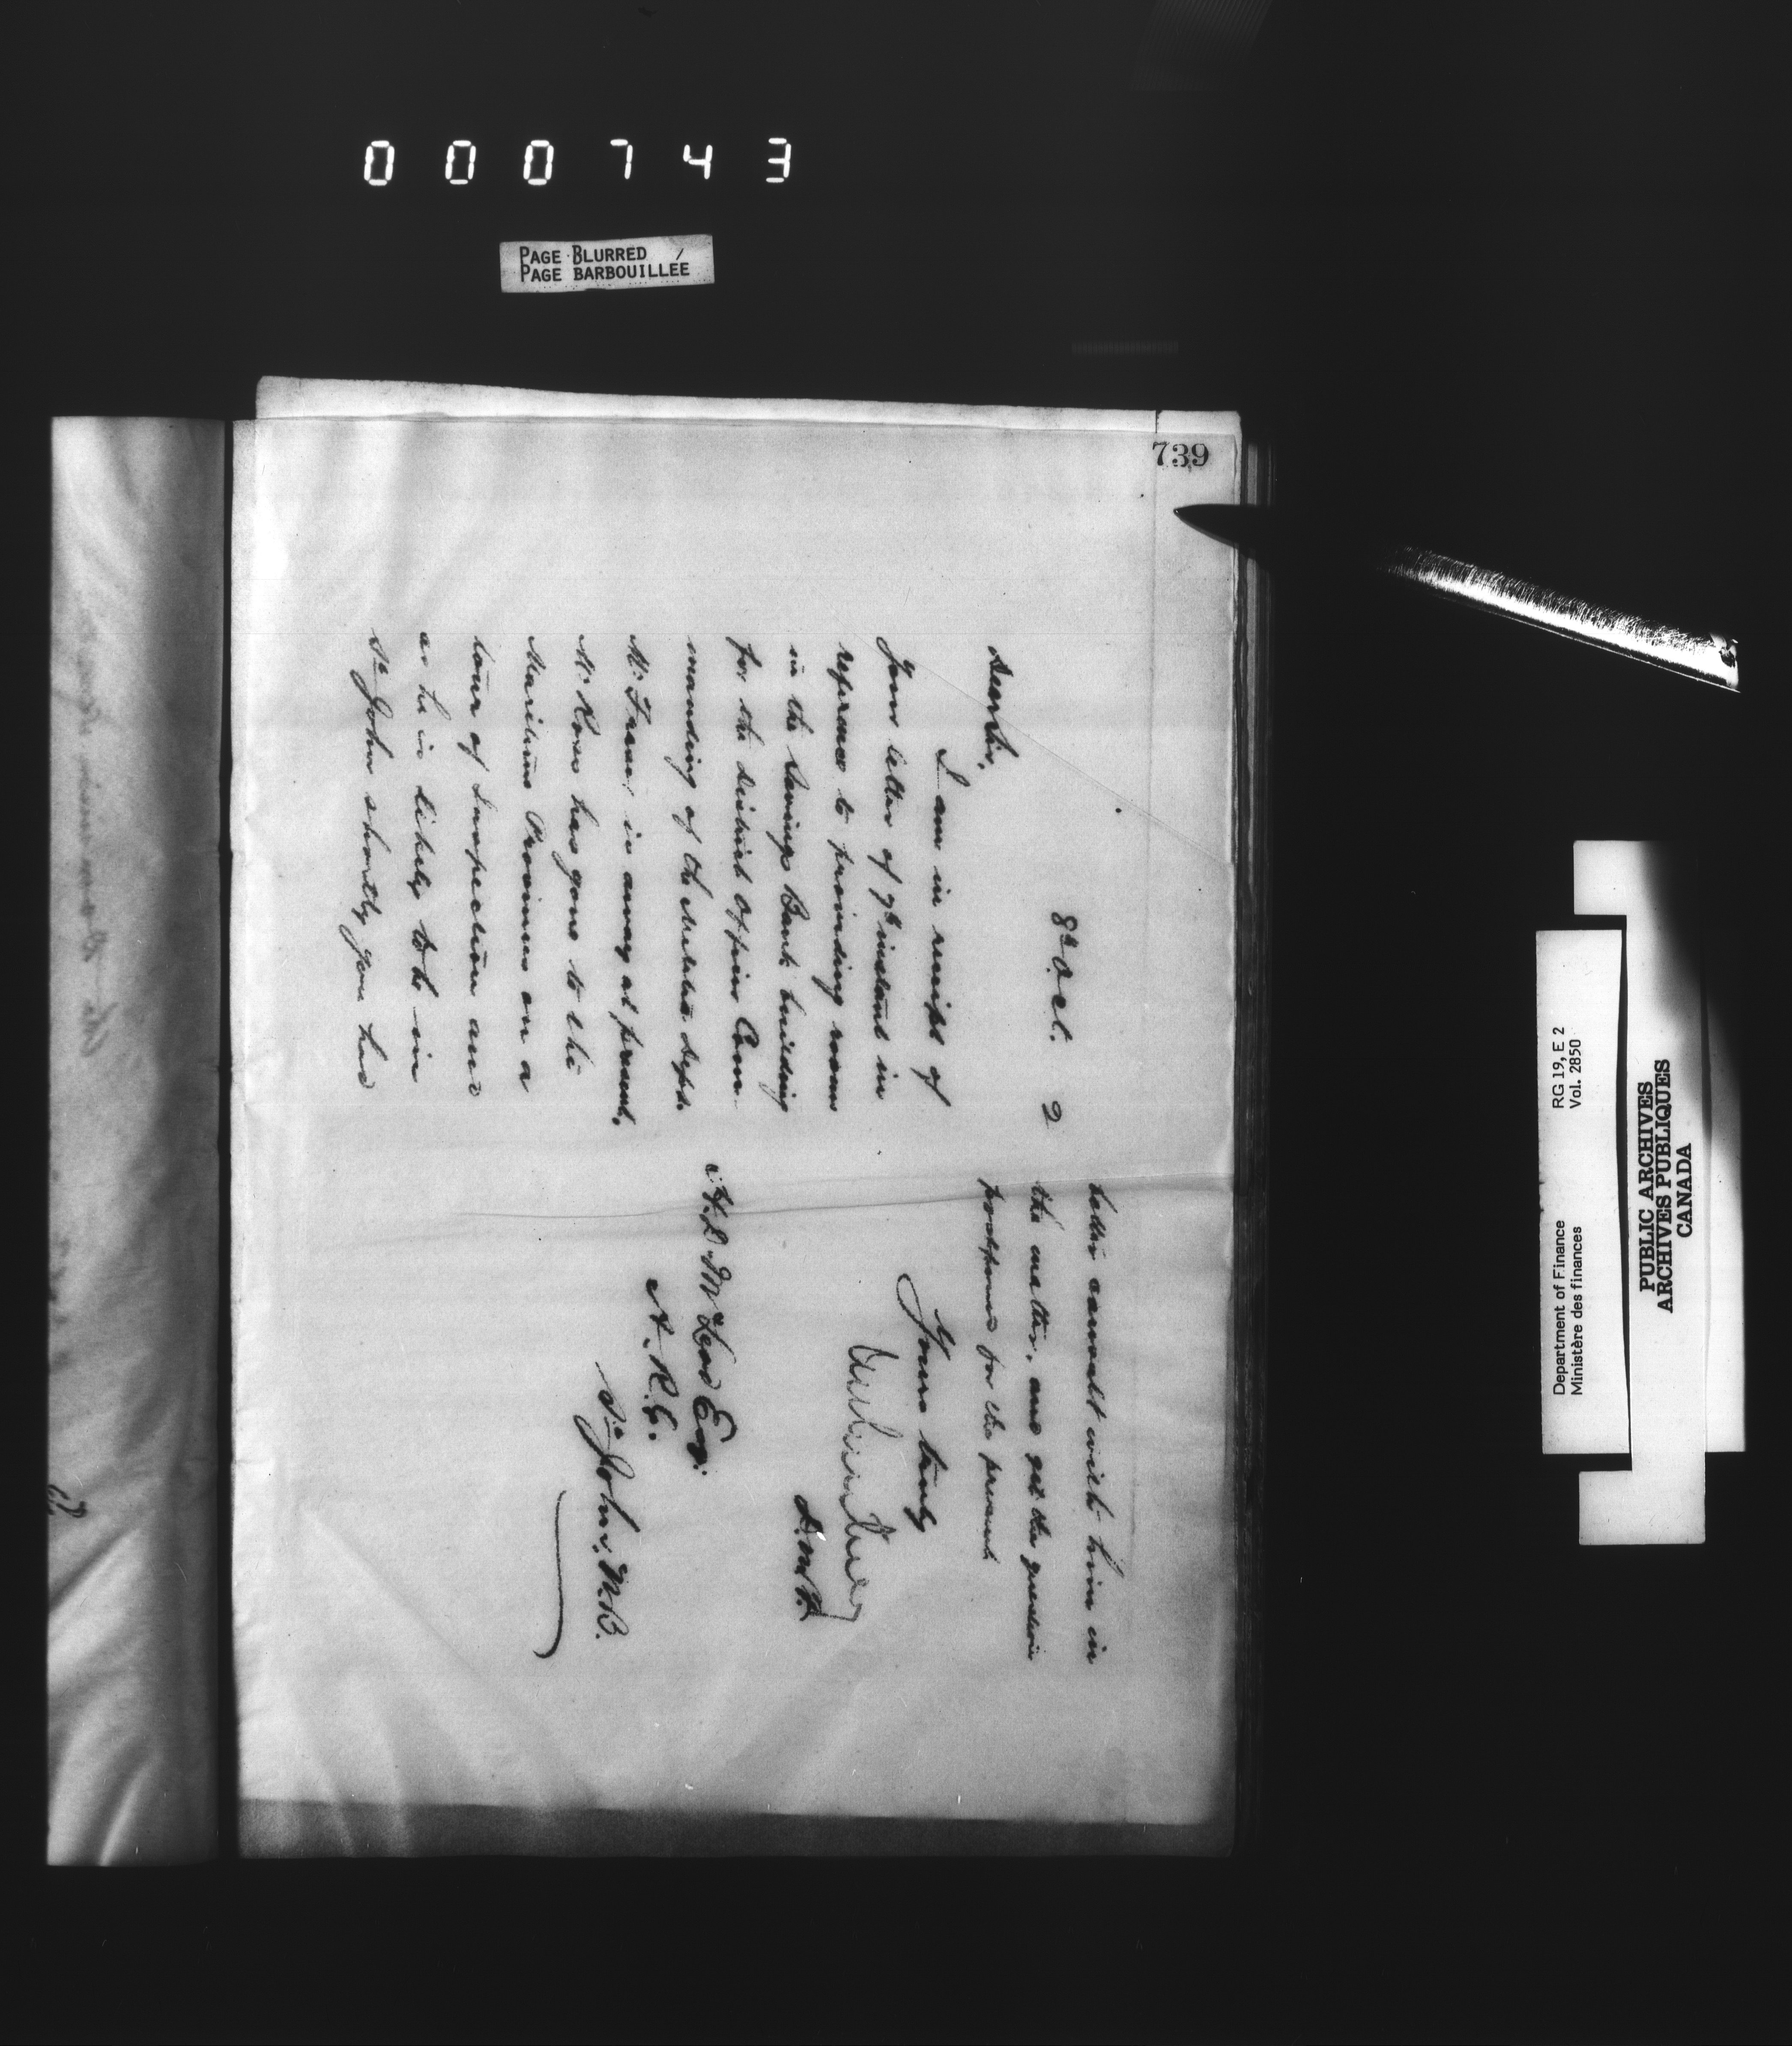 000743
PAGE BLURRED
PAGE BARBOUILLÉE
739
8th Oct. 2
Dear Sir,
I am in receipt of
your letter of 7th instant in
reference to providing rooms
in the Savings Bank building
for the district officer Com-
manding of the Militia Dept.
Mr. is away at present,
Mr. Ross has gone to the
Maritime Provinces on a
tour of Inspection and
as he is likely to be in
St John shortly you had
better consult with him in
the matter, and get the question
postponed for the present
Yours truly
D.M.F.
H.D. McLeod Esq.
A.R.G.
St John, N.B.
Department of Finance RG 19, E 2
Ministère des finances Vol. 2850
PUBLIC ARCHIVES
ARCHIVES PUBLIQUES
CANADA